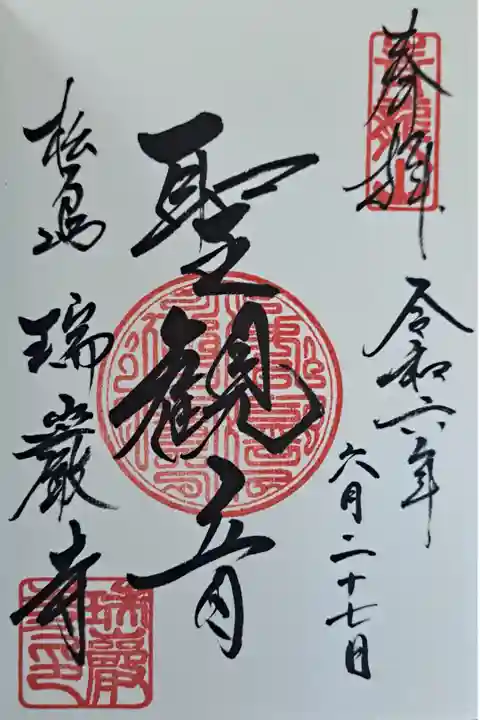 奉拝
令和六年
六月二十七日
聖観音
松島 瑞巌寺
青龍山